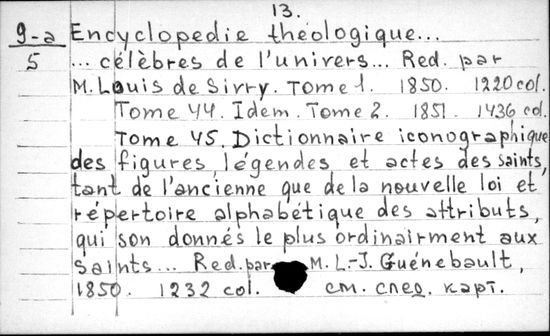 13.
9-a Encyclopedie théologique...
5 ... célèbres de l'univers... Red. par
M. Louis de Sivry. Tome 1. 1850. 1220 col.
Tome 44. Idem. Tome 2. 1851. 1436 col.
Tome 45. Dictionnaire iconographique
des figures, légendes et actes des saints,
tant de l'ancienne que de la nouvelle loi et
répertoire alphabétique des attributs,
qui son donnés le plus ordinairment aux
saints... Red. par M. L.-J. Guénebault,
1850. 1232 col. см. след. карт.